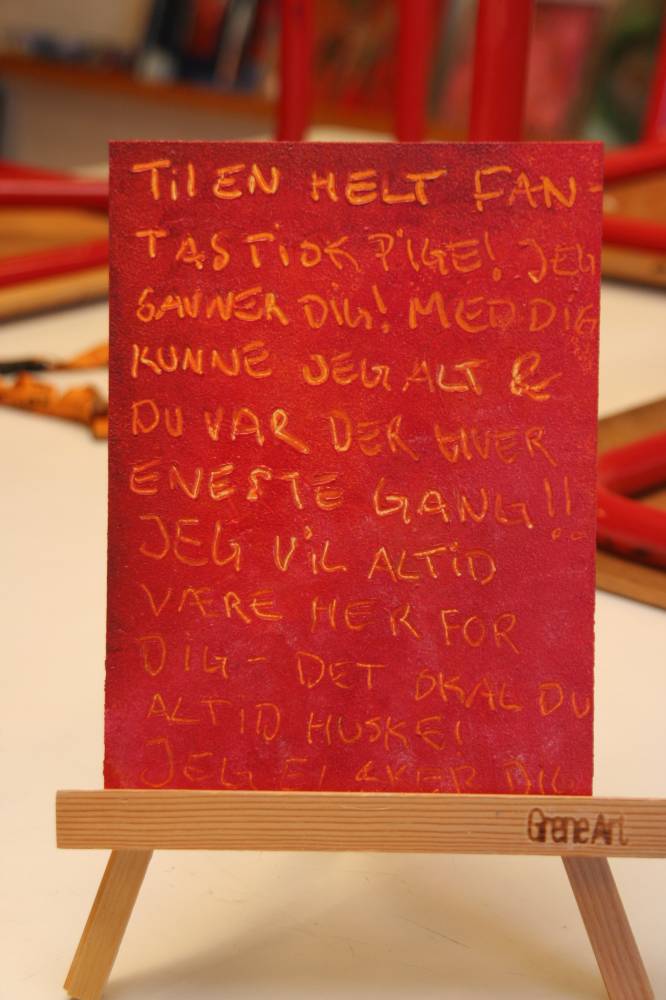 TIL EN HELT FAN-
TASTISK PIGE! JEG
SAVNER DIG! MED DIG
KUNNE JEG ALT &
DU VAR DER HVER
ENESTE GANG!!
JEG VIL ALTID
VÆRE HER FOR
DIG - DET SKAL DU
ALTID HUSKE!
JEG ELSKER DIG
GreneArt